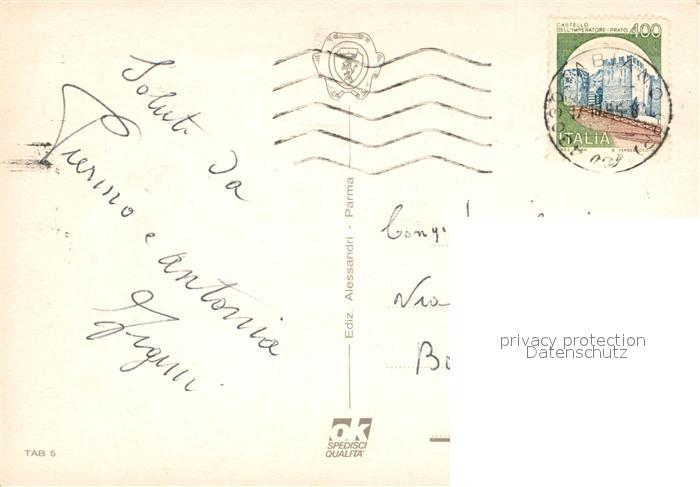 CASTELLO
DELL'IMPERATORE - PRATO 400
ITALIA
Saluti da
Pierino e Antonia
Via
Bo
privacy protection
Datenschutz
Ediz. Alessandri - Parma
ok
SPEDISCI
QUALITÀ
TAB 5